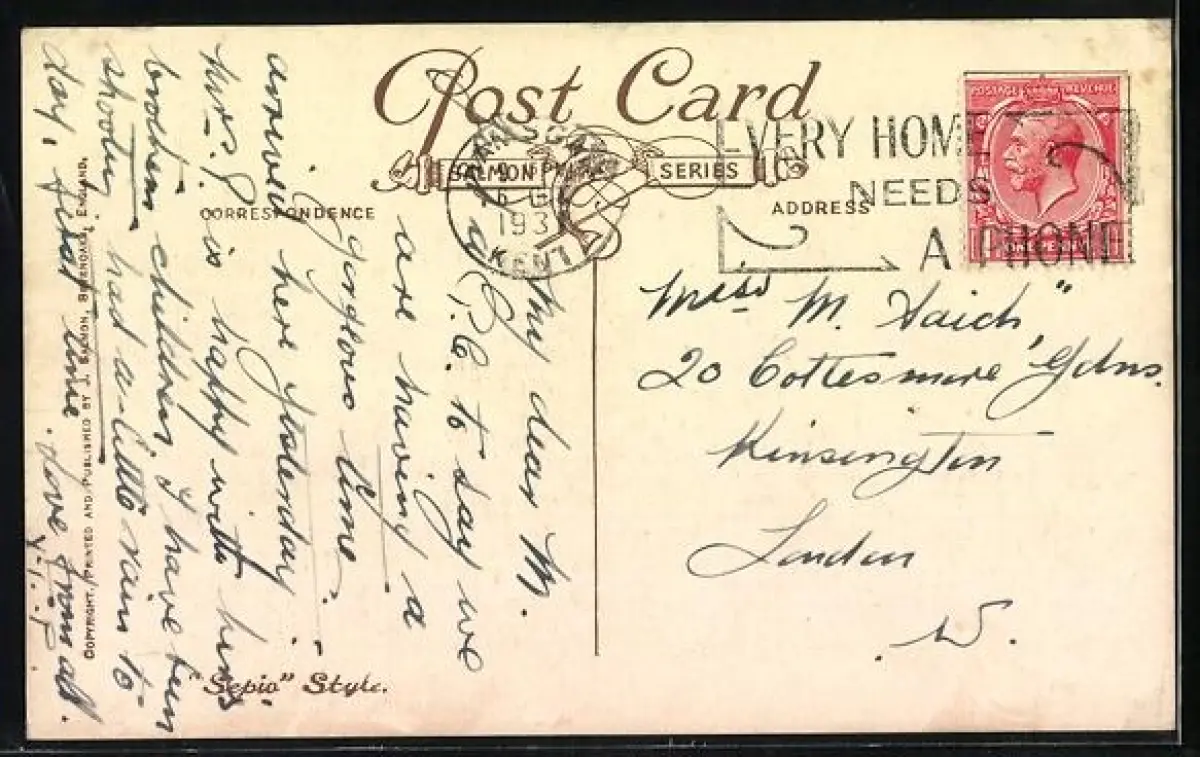 Post Card
SALMON SERIES
CORRESPONDENCE
ADDRESS
193
KENT
EVERY HOME
NEEDS
A PHONE
POSTAGE REVENUE
ONE PENNY
My dear M.
a P.C. to say we
are having a
gorgeous time.
arrived here yesterday
Mrs. P is happy with hers
brothers children, I have been
shooting had a little rain to
day, first time. love from all.
Miss M. Haich
20 Cottesmore Gdns.
Kinsington
London
W.
COPYRIGHT. PRINTED AND PUBLISHED BY J. SALMON, SEVENOAKS, ENGLAND.
"Sepio" Style.